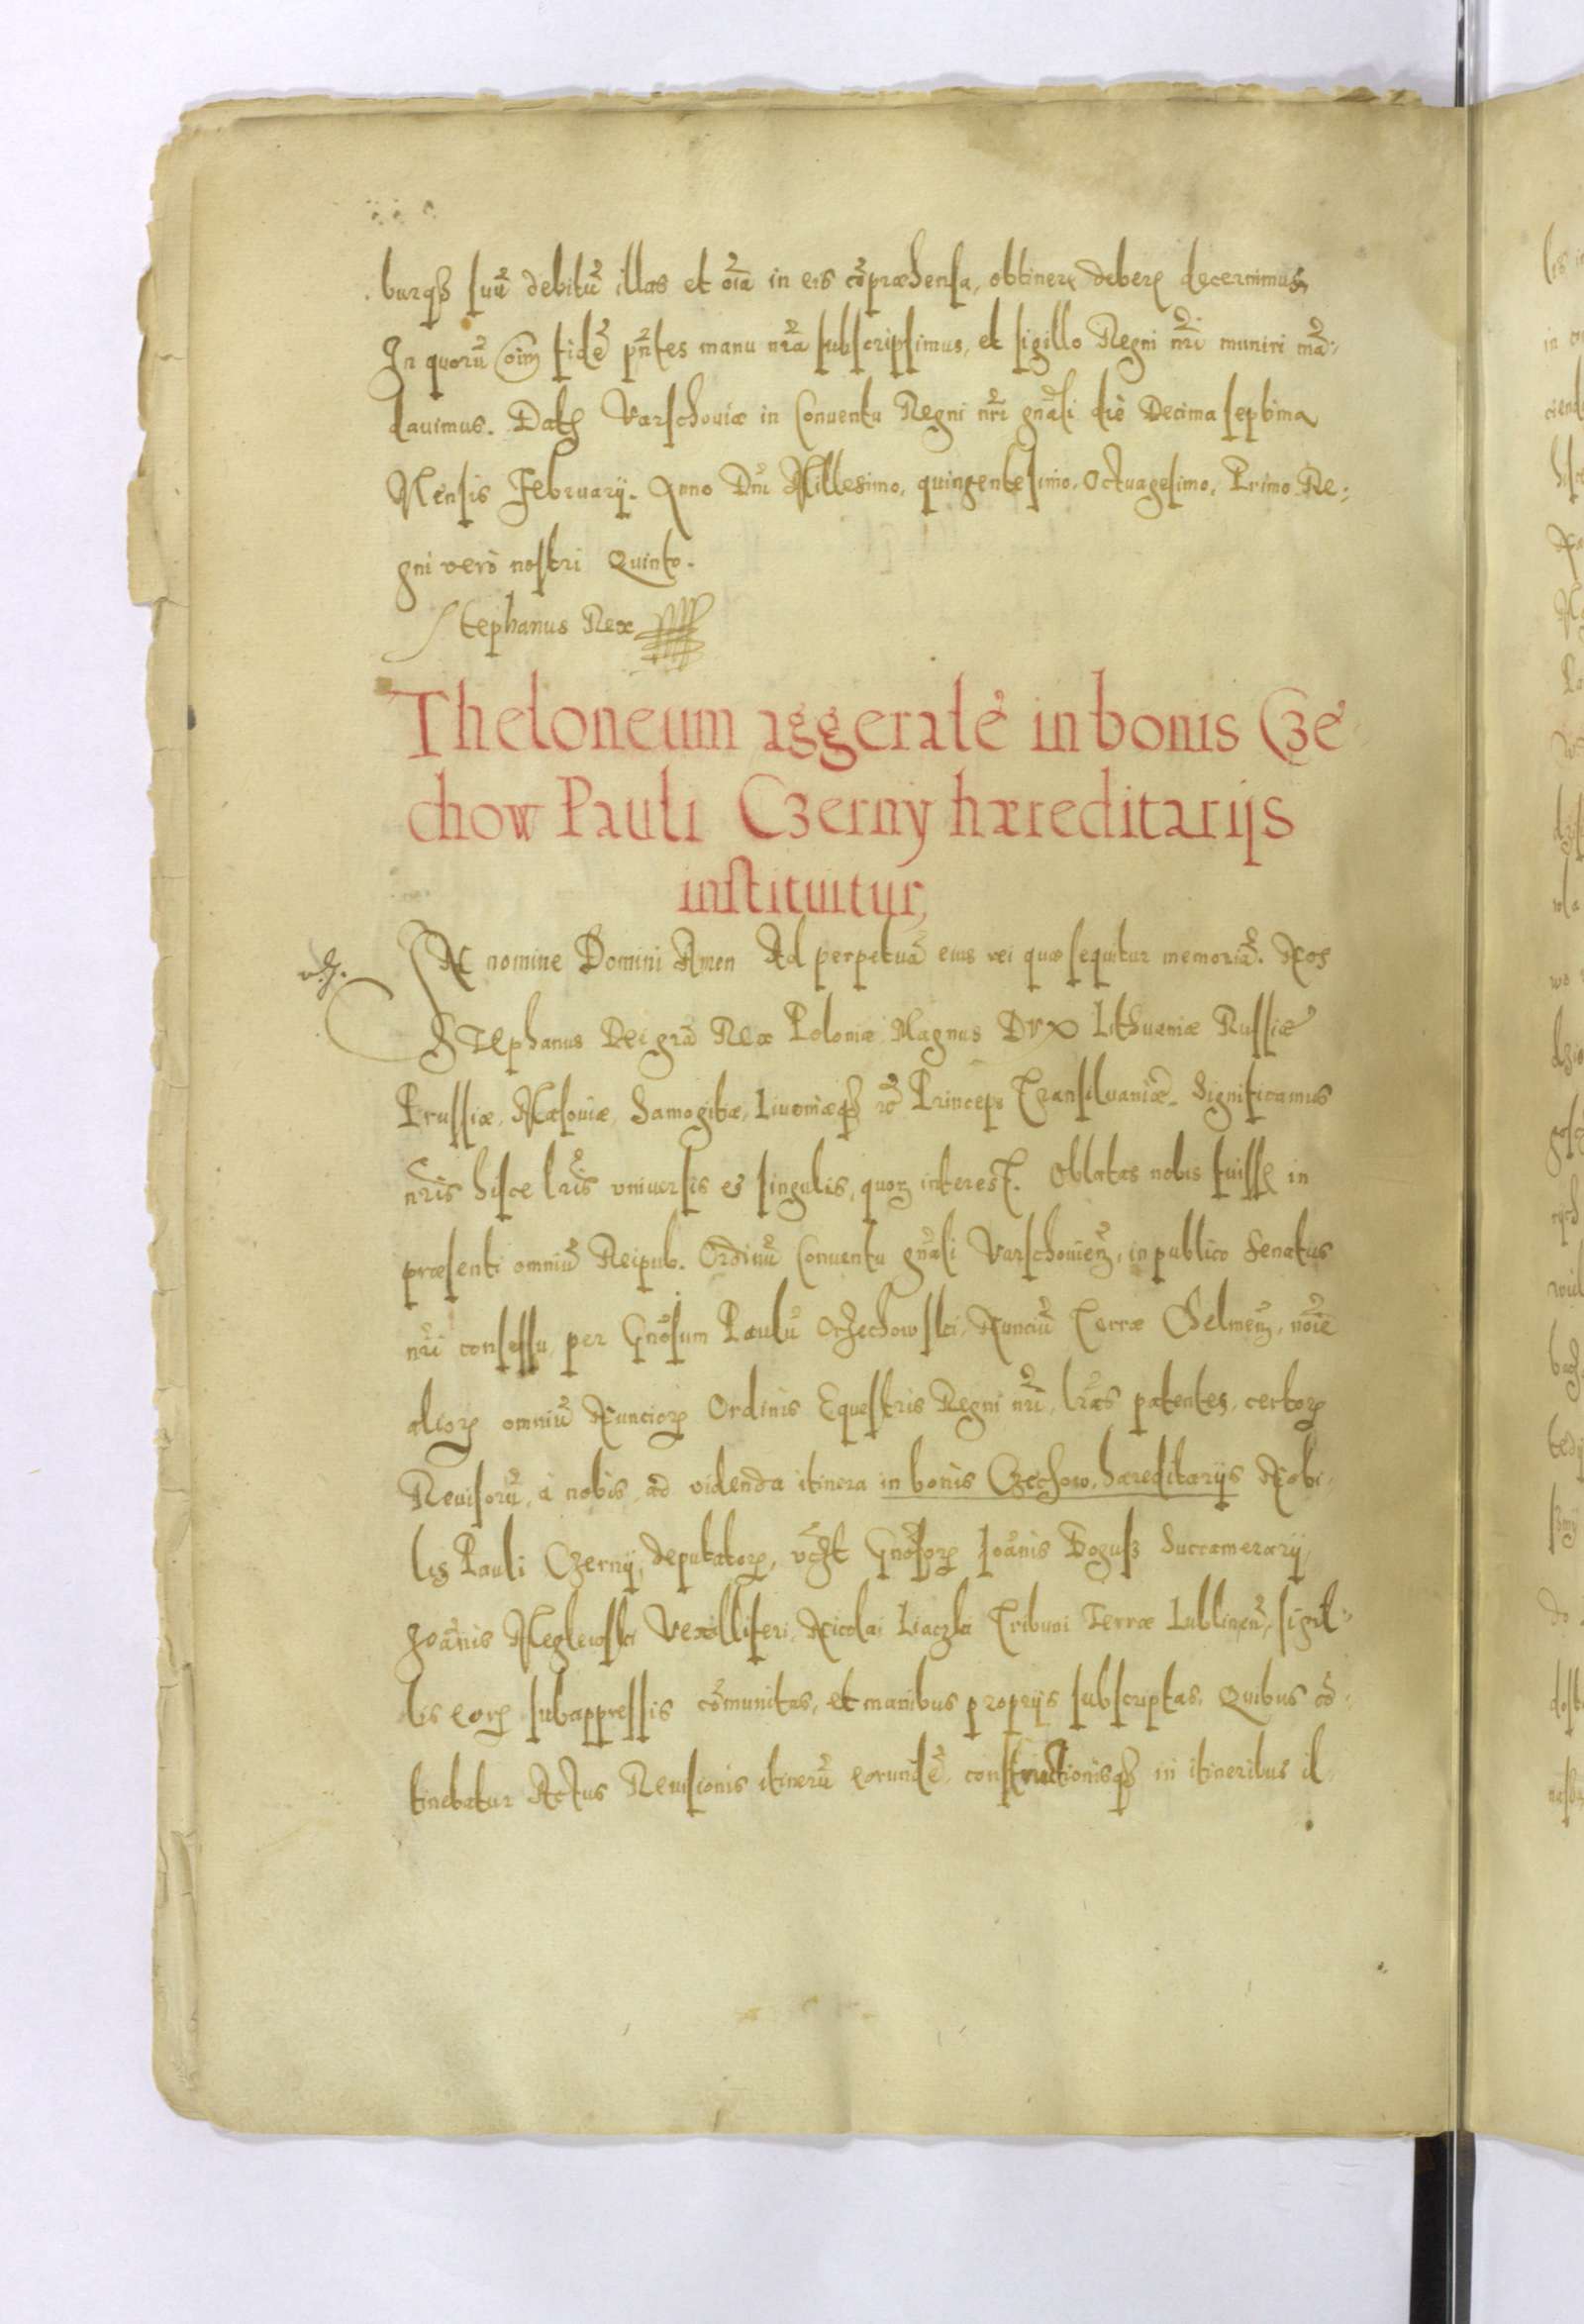 burqȝ suū debitū illas et oīa in eis cōpræhensa, obtinere debere decernimus,
In quorū oīm fidē pn̄tes manu nr̄a subscripsimus, et sigillo Regni nr̄i muniri mā:
dauimus. Datȝ Varschouiæ in Conuentu Regni nr̄i gnāli diè Decima septima
Mensis Februarij. Anno Dn̄i Millesimo, quingentesimo, Octuagesimo, Primo Re:
gni verò nostri Quinto.
Stephanus Rex
Theloneum aggeralē in bonis Cze
chow Pauli Czerny hæreditarijs
instituitur,
IN nomine Domini Amen Ad perpetuā eius rei quæ sequitur memoriā. Nos
STephanus Dei grā Rex Poloniæ Magnus DVX Lithuaniæ Russiæ
Prussiæ, Masouiæ, Samogitiæ, Liuoniæqȝ etc̄ Princeps Transiluaniæ. Significamus
nr̄is hisce lr̄is vniuersis et singulis, quorȝ interest. Oblatas nobis fuisse in
præsenti omniū Reipub. Ordinū Conuentu gnāli Varschouienȝ, in publico Senatus
nr̄i consessu, per Gnōsum Paulū Orzechowski, Nunciū Terræ Chelmenȝ, noīe
aliorȝ omniū Nunciorȝ Ordinis Equestris Regni nr̄i, lr̄as patentes, certorȝ
Reuisorū, à nobis, ad videnda itinera in bonis Czechow, hæreditarijs Nobi:
lis Pauli Czernij, deputatorȝ, vꝫt Gnōsorȝ Ioānis Bogusz Succamerarij,
Joānis Meglewski Vexilliferi, Nicolai Liaczki Tribuni Terræ Lublinen̄, sigil:
lis eorȝ subappressis cōmunitas, et manibus proprijs subscriptas, Quibus cō:
tinebatur Actus Reuisionis itinerū eorundē, constructionisqȝ in itineribus il